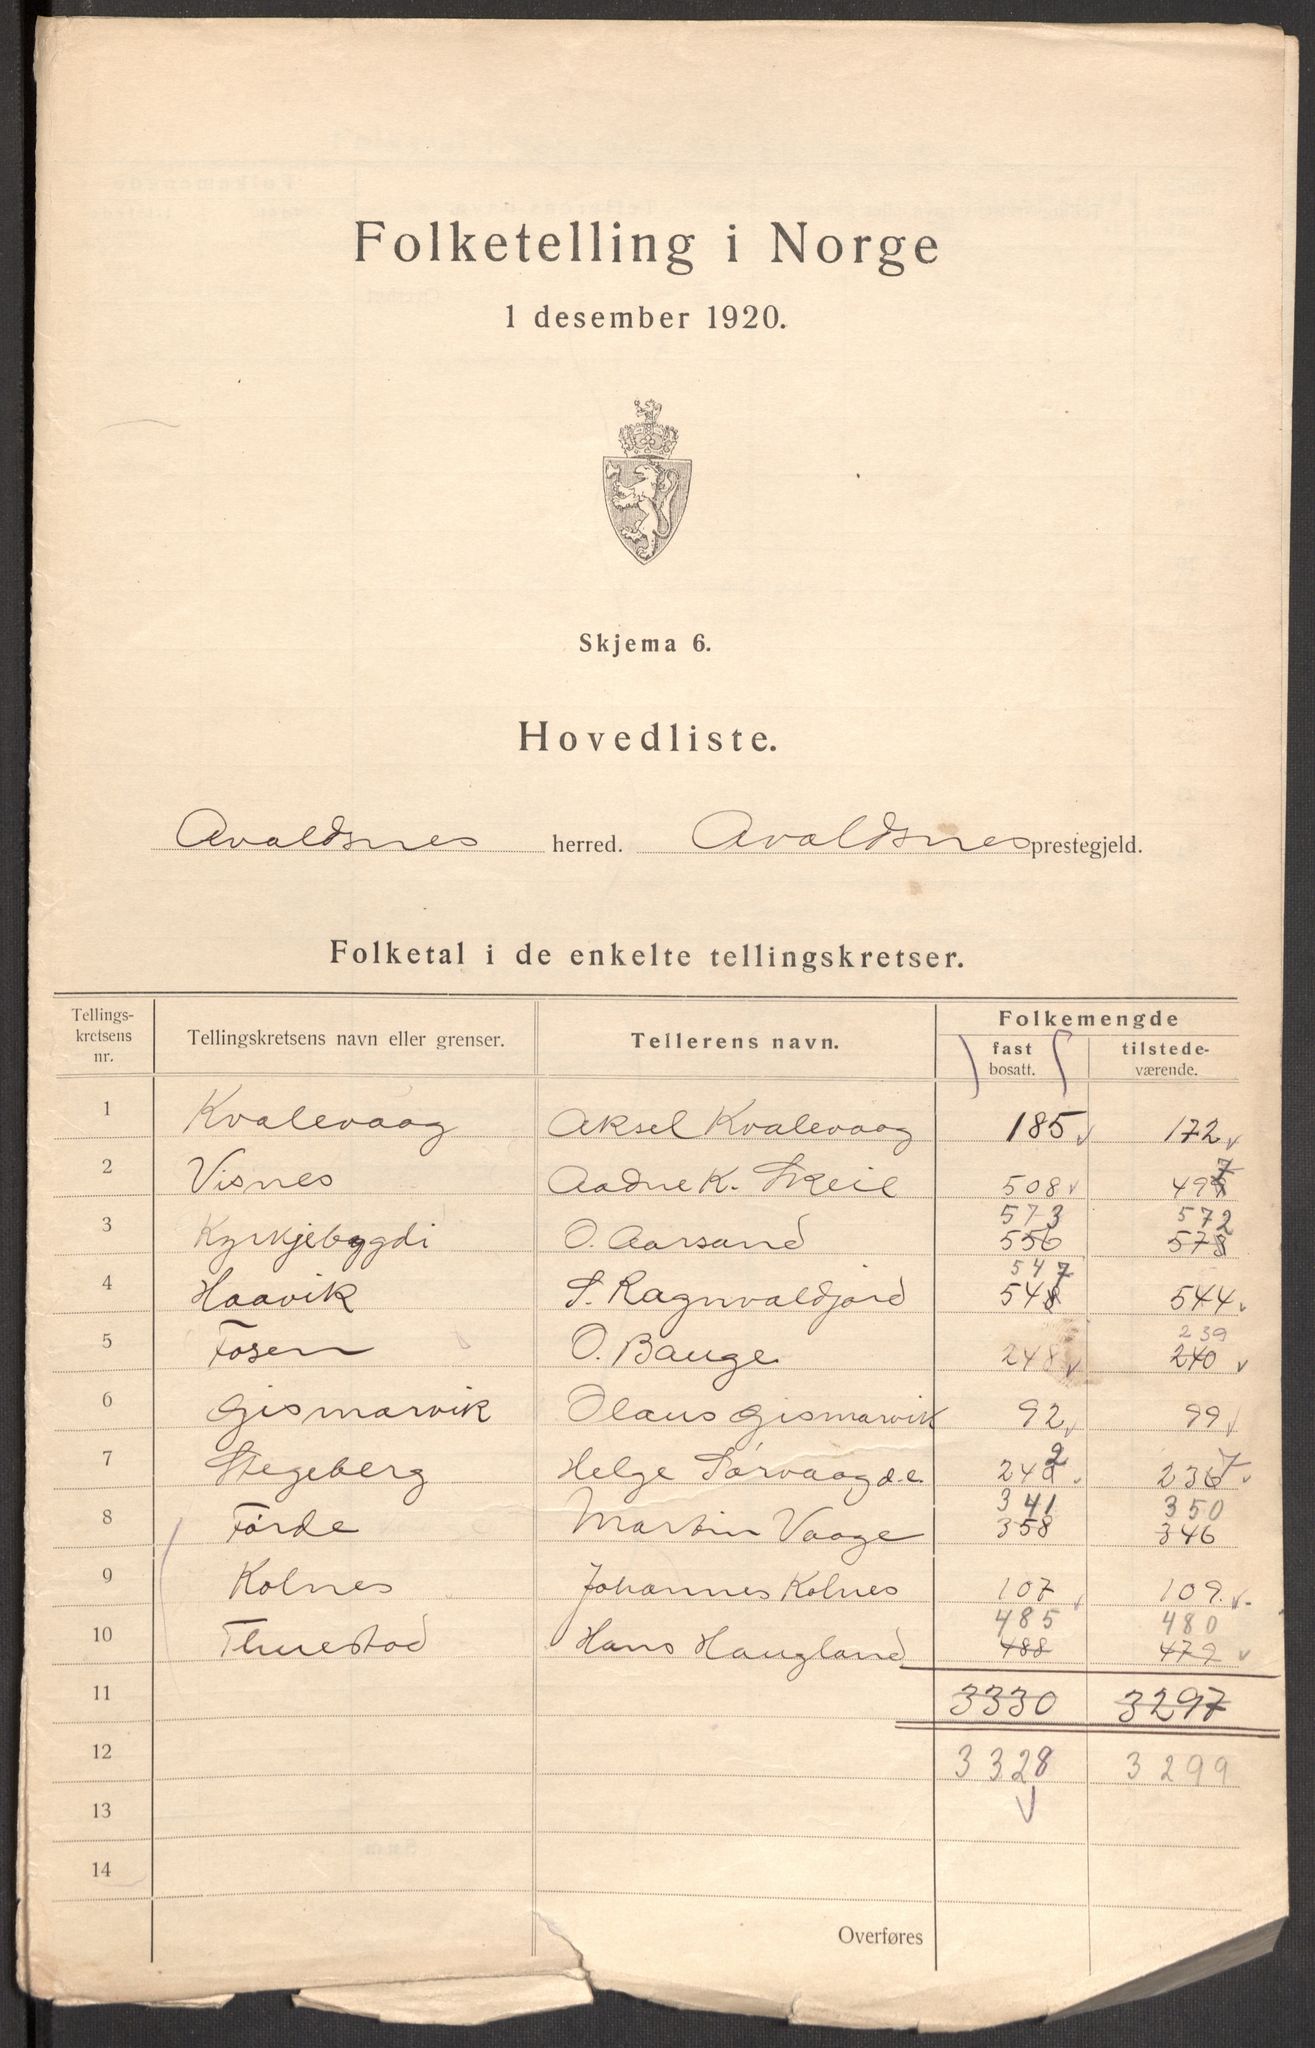 Folketelling i Norge
1 desember 1920.
Skjema 6.
Hovedliste.
Avaldsnes herred. Avaldsnes prestegjeld.
Folketal i de enkelte tellingskretser.
Tellings-
kretsens
nr.
Tellingskretsens navn eller grenser.
Tellerens navn.
Folkemengde
fast
bosatt.
tilstede-
værende.
1 Kvalevaag Aksel Kvalevaag 185 172
2 Visnes Aadne K. Skeie 508 497
573 572
3 Kyrkjebygdi O. Aarsand 556 578
547
4 Haavik S. Ragnvaldjord 548 544
239
5 Fosen O. Bauge 248 240
6 Gismarvik Olaus Gismarvik 92 99
2 7
7 Stegeberg Helge Sørvaag d.e. 248 236
341 350
8 Førde Martin Vaage 358 346
9 Kolnes Johannes Kolnes 107 109
485 480
10 Thuestad Hans Haugland 488 479
11 3330 3297
12 3328 3299
13
14
Overføres